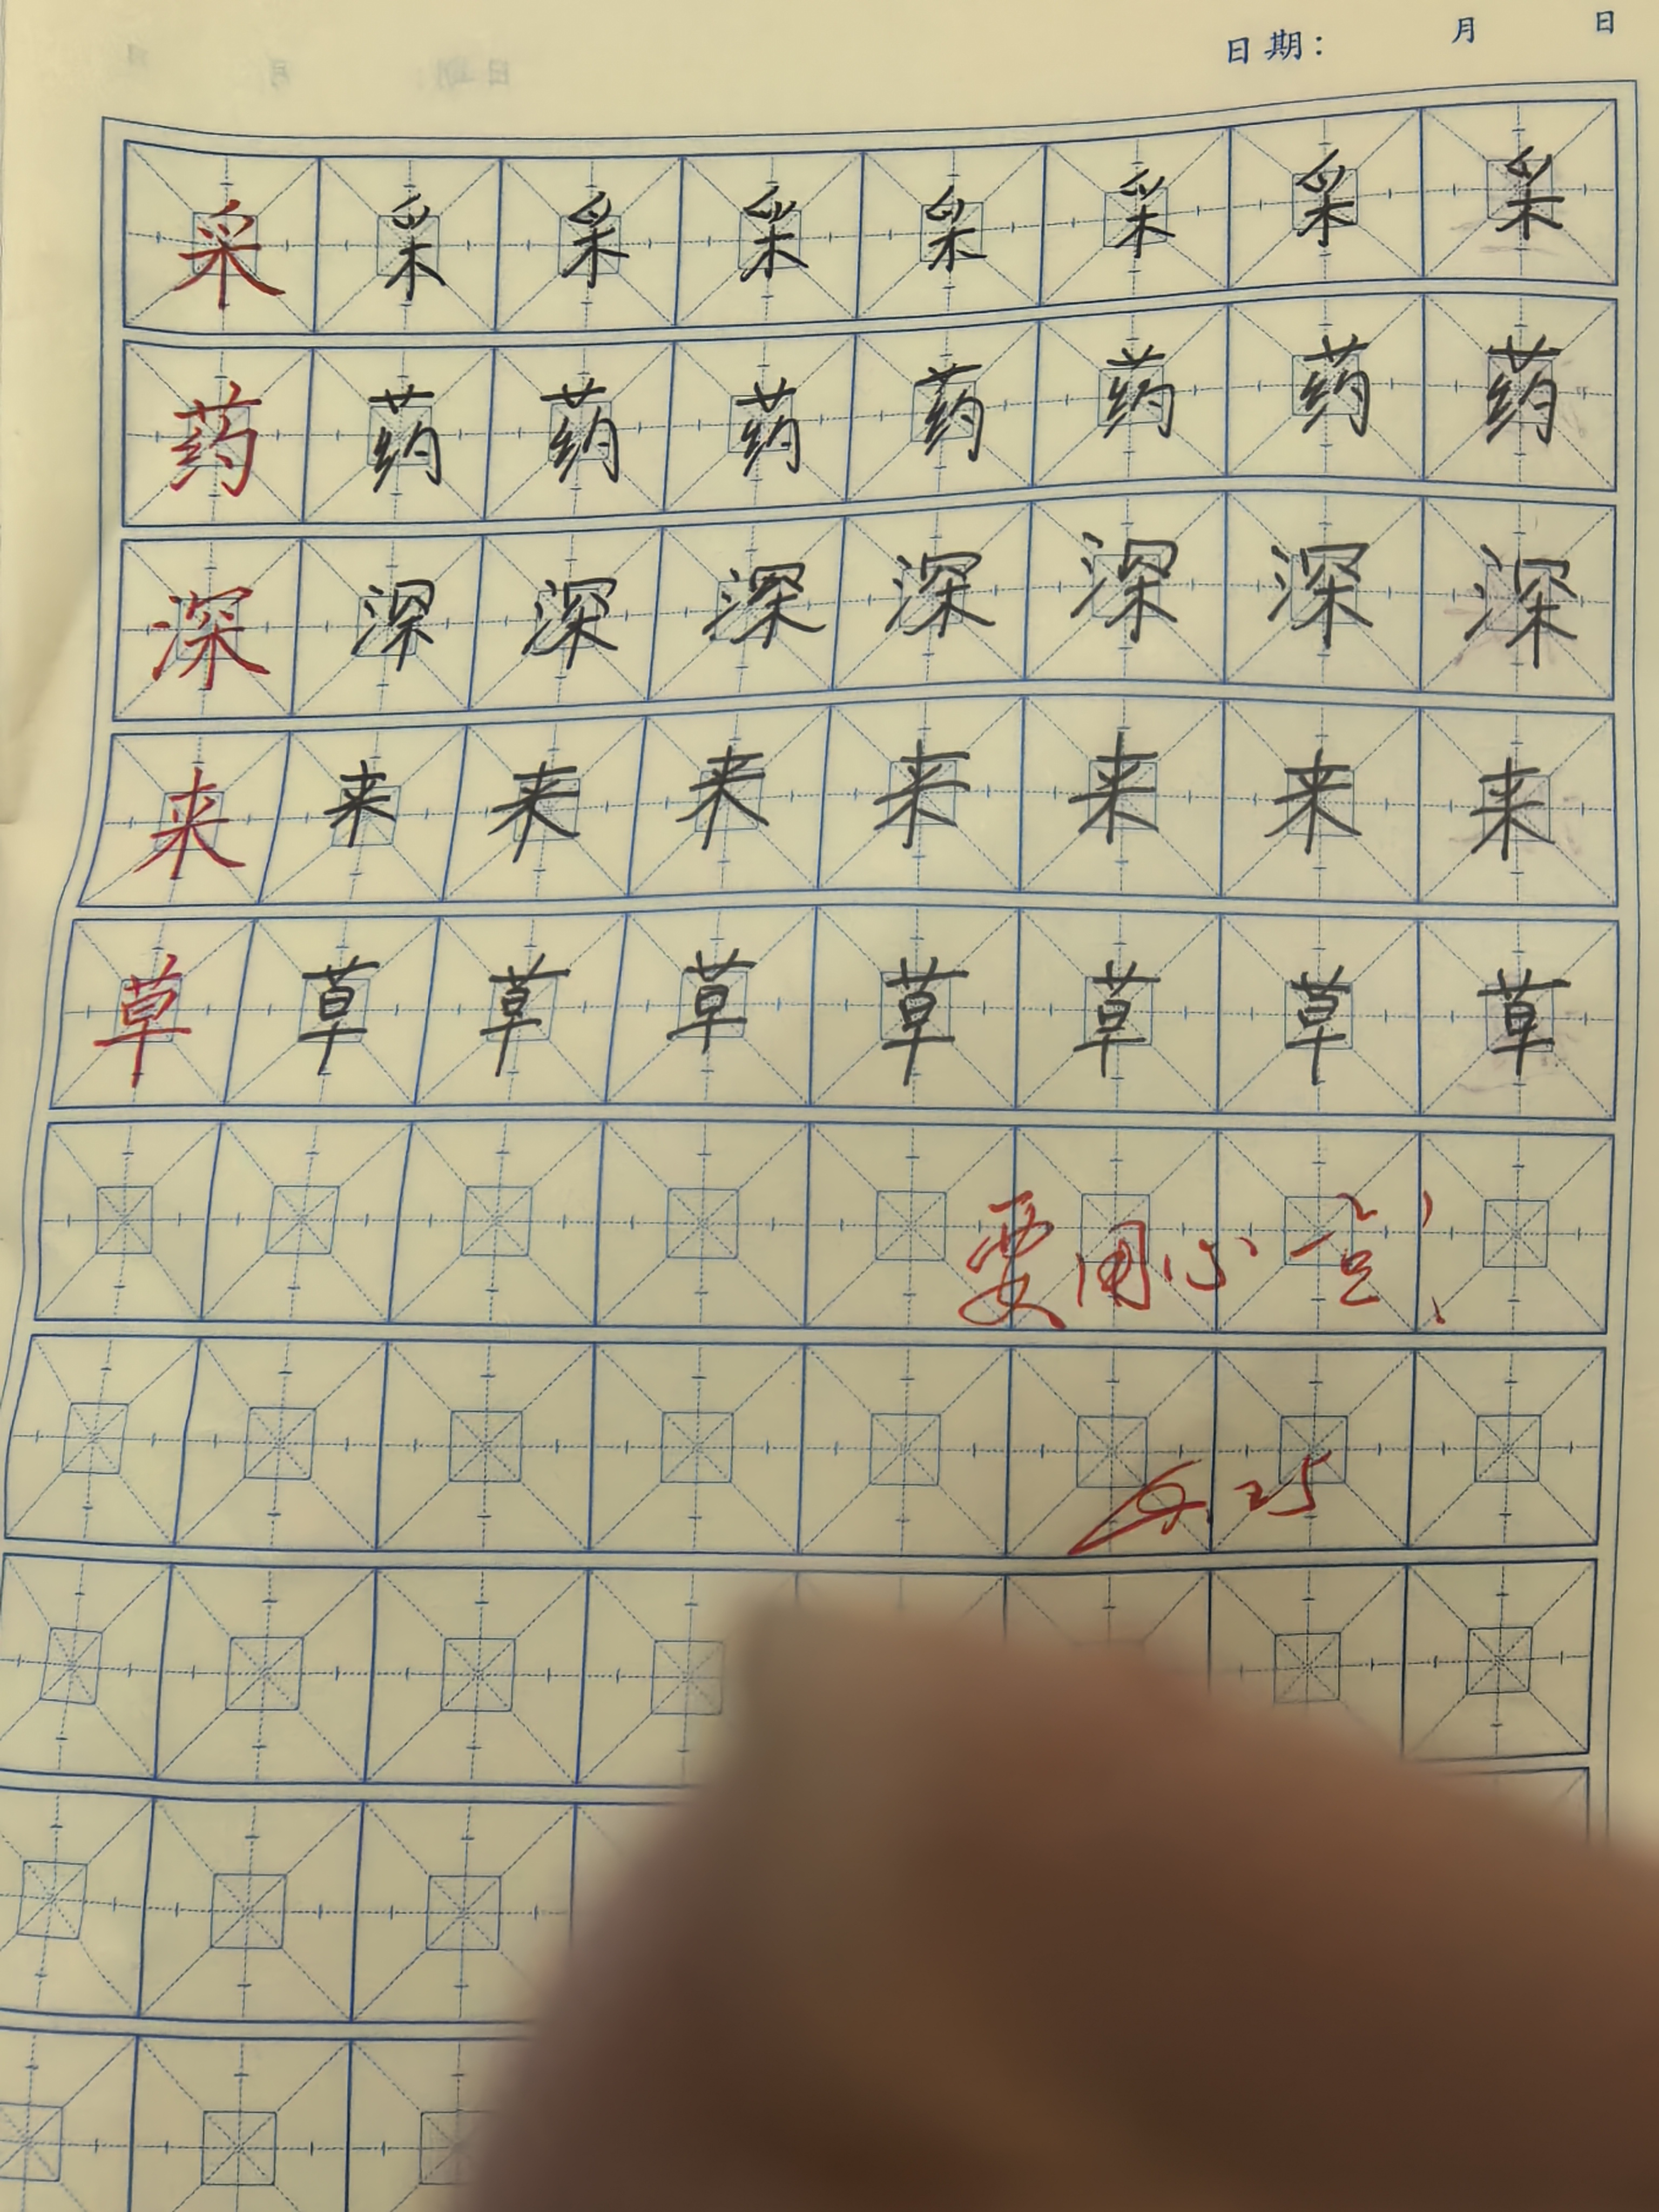 日期： 月 日
采 采 采 采 采 采 采 采
药 药 药 药 药 药 药 药
深 深 深 深 深 深 深 深
来 来 来 来 来 来 来 来
草 草 草 草 草 草 草 草
要用心学！